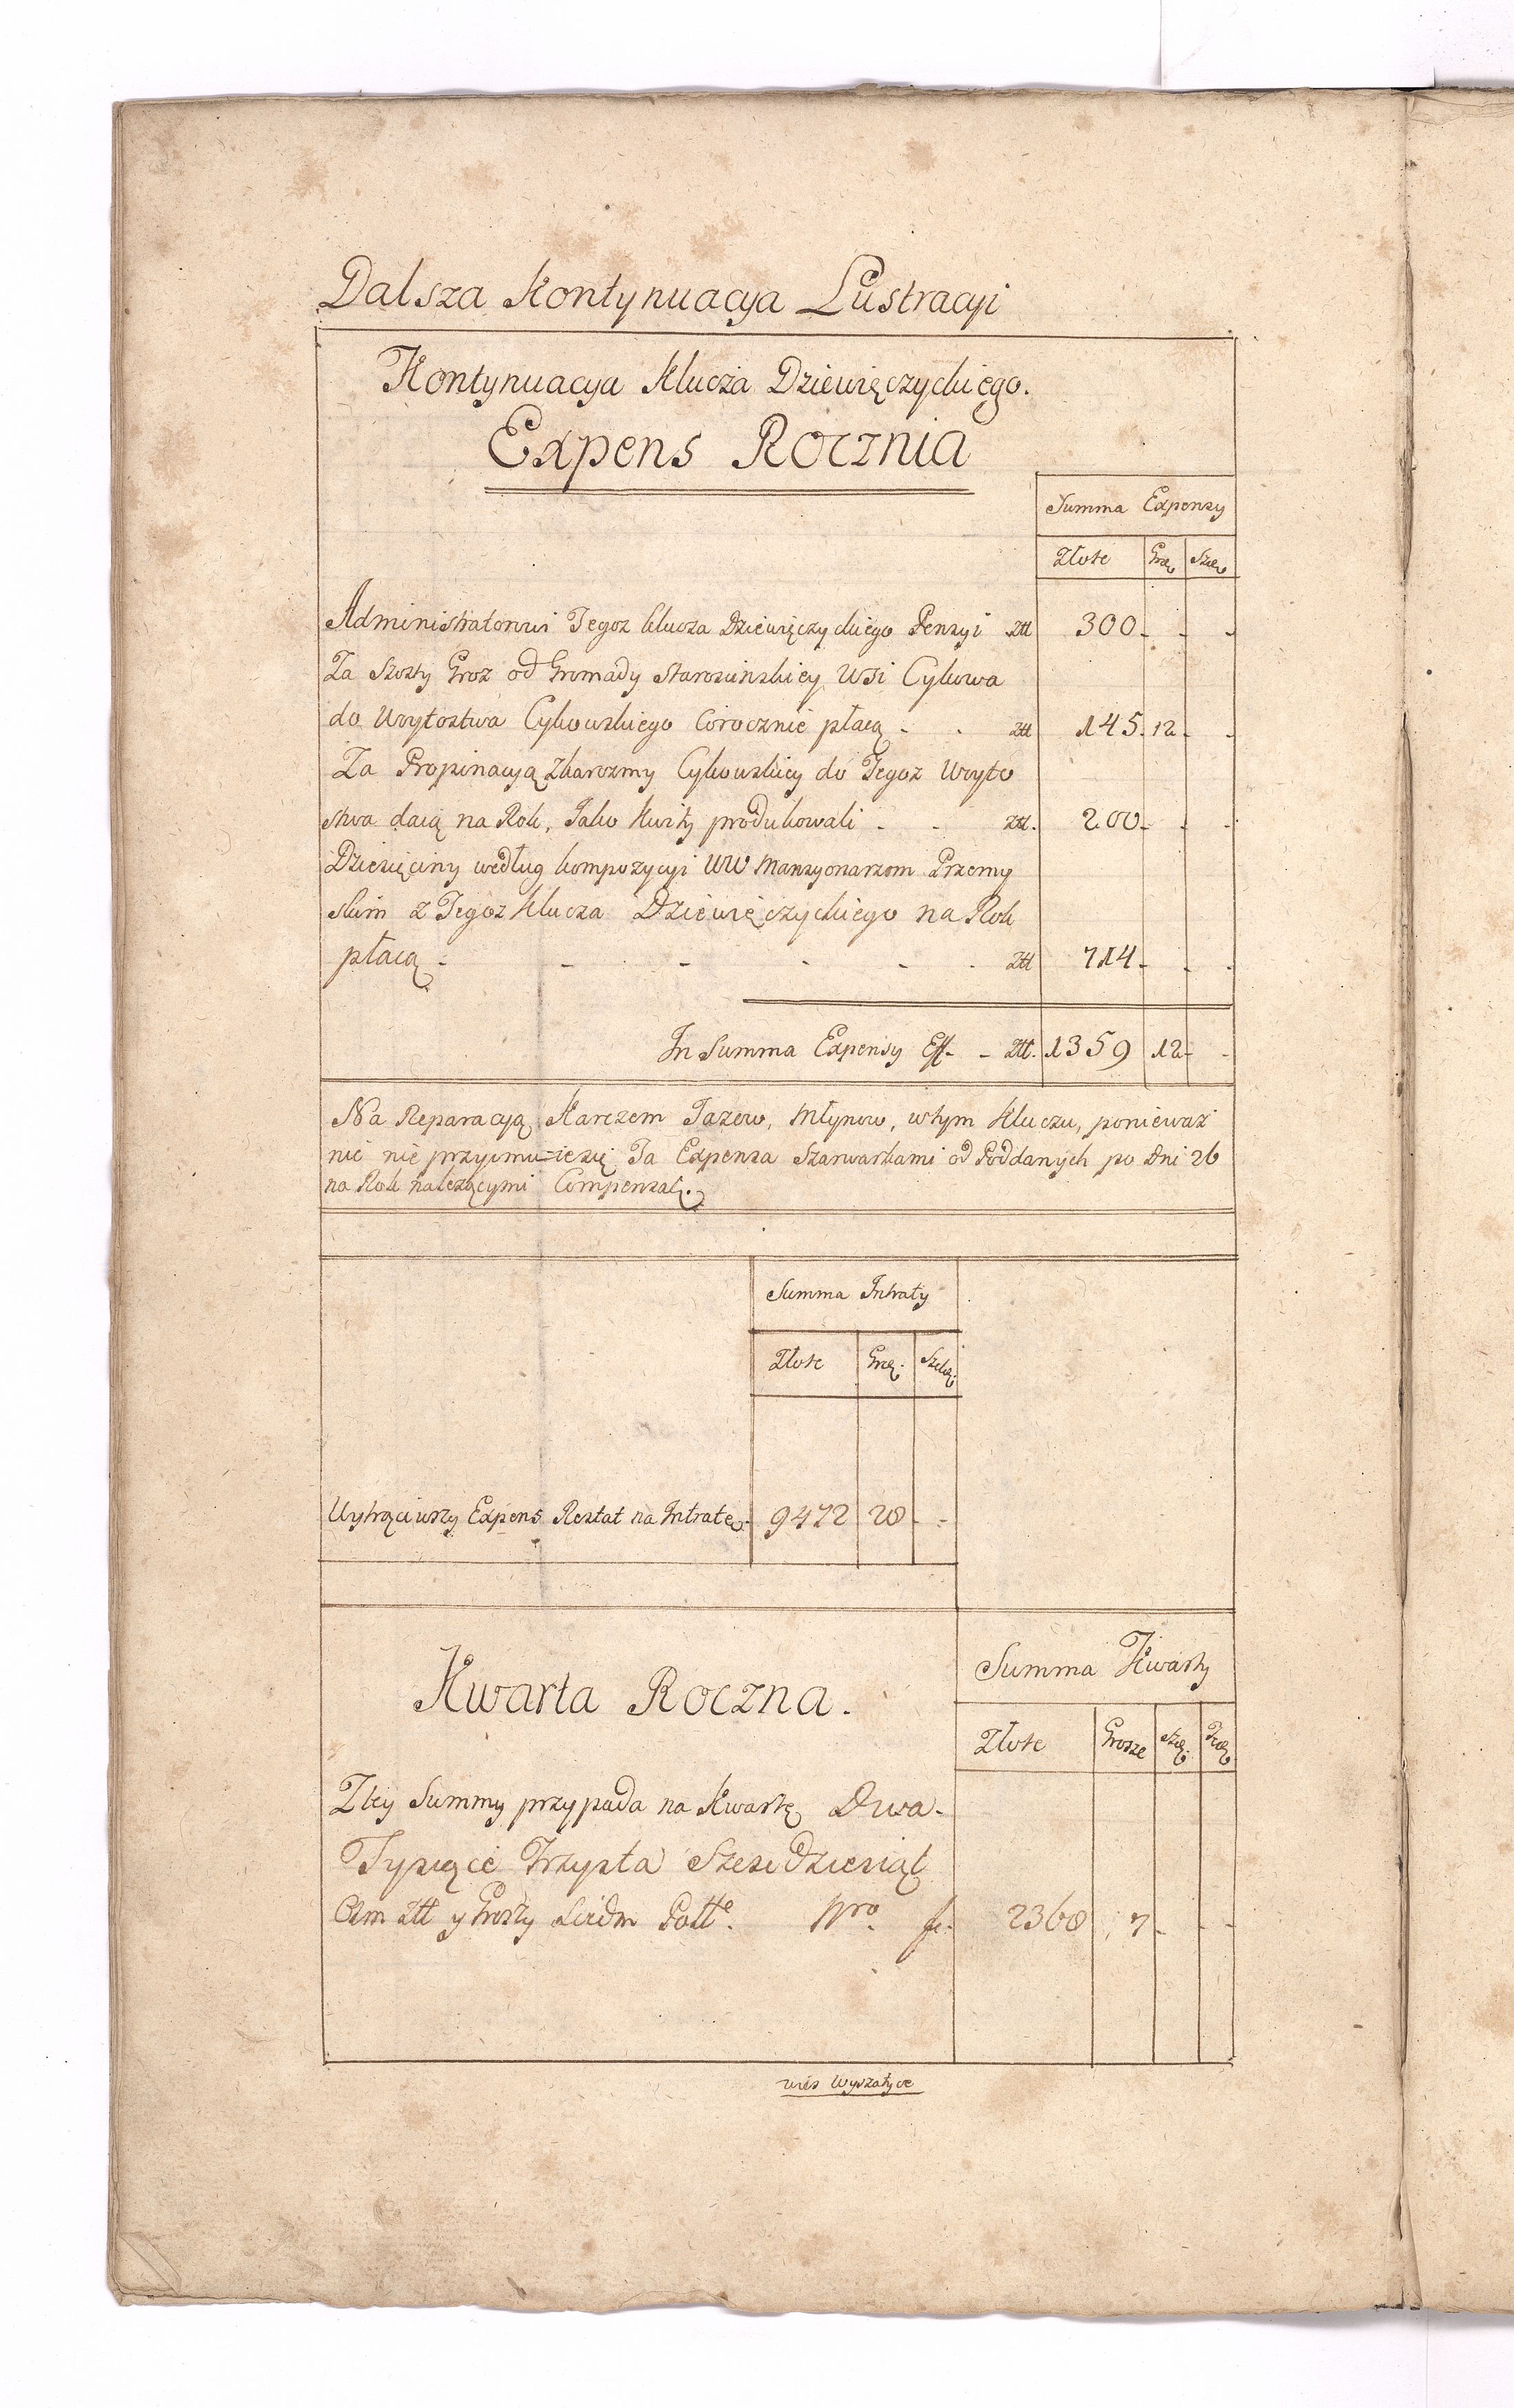 Dalsza Kontynuacyа Lustracyi
Kontynuacya Klucza Dziewięczyckiego.
Expens Rocznia
Summa Expensy
Złote Szelę
Administratorowi Tegoz Klucza Dziewięczyckiego Pensyi Ztt 300 - - -
Za Szosty Grosz od Gromady Starosinskiey Wsi Cykowa
do Woytostwa Cykowskiego Corocznie płacą - - Ztt 145. 12 - -
Za Propinacyą Zkarczmy Cykowskiey do Tegoz Woyto
stwa daią na Rok, Jako Kwity produkowali - - Ztt. 200 - - -
Dziesięciny według kompozycyi WW Mansyonarzom Przemy
skim z Tegoz Klucza Dziewięczyckiego na Rok
płacą - - - - - - Ztt 714 - - -
In Summa Expensy Eff - - Ztt. 1359 12 - -
Na Reparacyą Karczem Jazow, Młynow, w tym Kluczu, poniewaz
nic nie przyimu=ie się Ta Expensa Szarwarkami od Poddanych po Dni 26
na Rok nalezącymi Compensat.
Summa Intraty
Złote Szeląg.
Wytrąciwszy Expens Restat na Intratę - 9472 28 - -
Kwarta Roczna.
Summa Kwarty
Złote Grosze
Z tey Summy przypada na Kwartę Dwa-
Tysięce Trzysta Szesc Dziesiąt
Osm Ztt y Groszy Siedm Poltte. Nro. fl. 2368 7 - - -
wies Wyszatyce